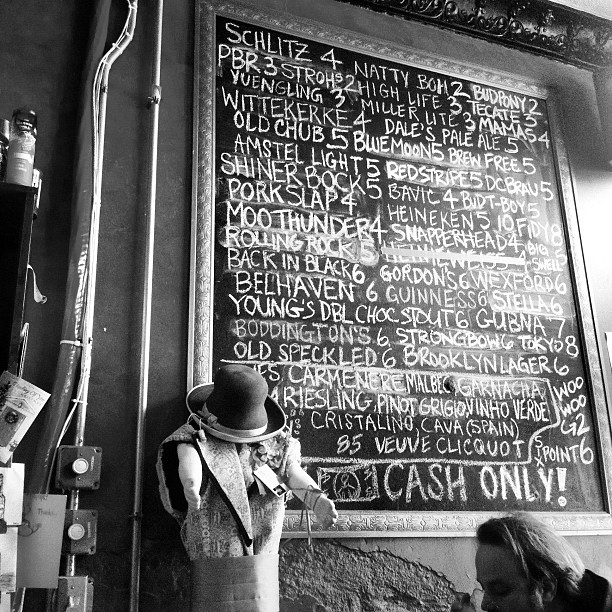 SCHLITZ 4 NATTY BOH 2 BUDPONY 2
PBR 3 STROHS 2 HIGH LIFE 3 TECATE 3
YUENGLING 3 MILLER LITE 3 MAMAS 4
WITTEKERKE 4 DALE'S PALE ALE 5
OLD CHUB 5 BLUE MOON 5 BREW FREE 5
AMSTEL LIGHT 5 RED STRIPE 5 DC BRAU 5
SHINER BOCK 5 BAVIC 4 BUDT-BOY 5
PORK SLAP 4 HEINEKEN 5 10 FIDY 8
MOO THUNDER 4 SNAPPERHEAD 4 BIG SWELL 5
ROLLING ROCK 5
BACK IN BLACK 6 GORDON'S 6 WEXFORD 6
BELHAVEN 6 GUINNESS 6 STELLA 6
YOUNG'S DBL CHOC STOUT 6 GUBNA 7
BODDINGTON'S 6 STRONGBOW 6 TOKYO 8
OLD SPECKLED 6 BROOKLYN LAGER 6
CARMENERE MALBEC, GARNACHA,
RIESLING, PINOT GRIGIO, VINHO VERDE
WOO WOO G2
CRISTALINO, CAVA (SPAIN)
85 VEUVE CLICQUOT
SIXPOINT 6
CASH ONLY!